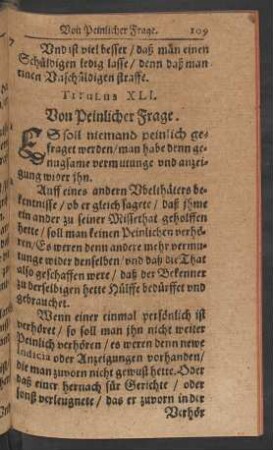 Von Peinlicher Frage. 109
Vnd ist viel besser / daß man einen
Schüldigen ledig lasse / denn daß man
einen Vnschüldigen straffe.
TITULUS XLI.
Von Peinlicher Frage.
ES soll niemand peinlich ge-
fraget werden / man habe denn ge-
nugsame vermutunge vnd anzei-
gung wider jhn.
Auff eines andern Vbelthäters be-
kentnisse / ob er gleich sagete / daß jhme
ein ander zu seiner Missethat geholffen
hette / soll man keinen Peinlichen verhö-
ren / Es weren denn andere mehr vermu-
tunge wider denselben / vnd daß die That
also geschaffen were / daß der Bekenner
zu derseldigen hette Hülffe bedürffet vnd
gebrauchet.
Wenn einer einmal persönlich ist
verhöret / so soll man jhn nicht weiter
Peinlich verhören / es weren denn newe
Indicia oder Anzeigungen vorhanden /
die man zuvorn nicht gewust hette. Oder
daß einer hernach für Gerichte / oder
sonst verleugnete / das er zuvorn in der
Verhör